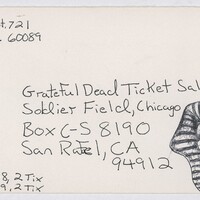 t. 721
60089
Grateful Dead Ticket Sal
Soldier Field, Chicago
Box C-S 8190
San Rafel, CA
94912
8, 2 Tix
9, 2 Tix